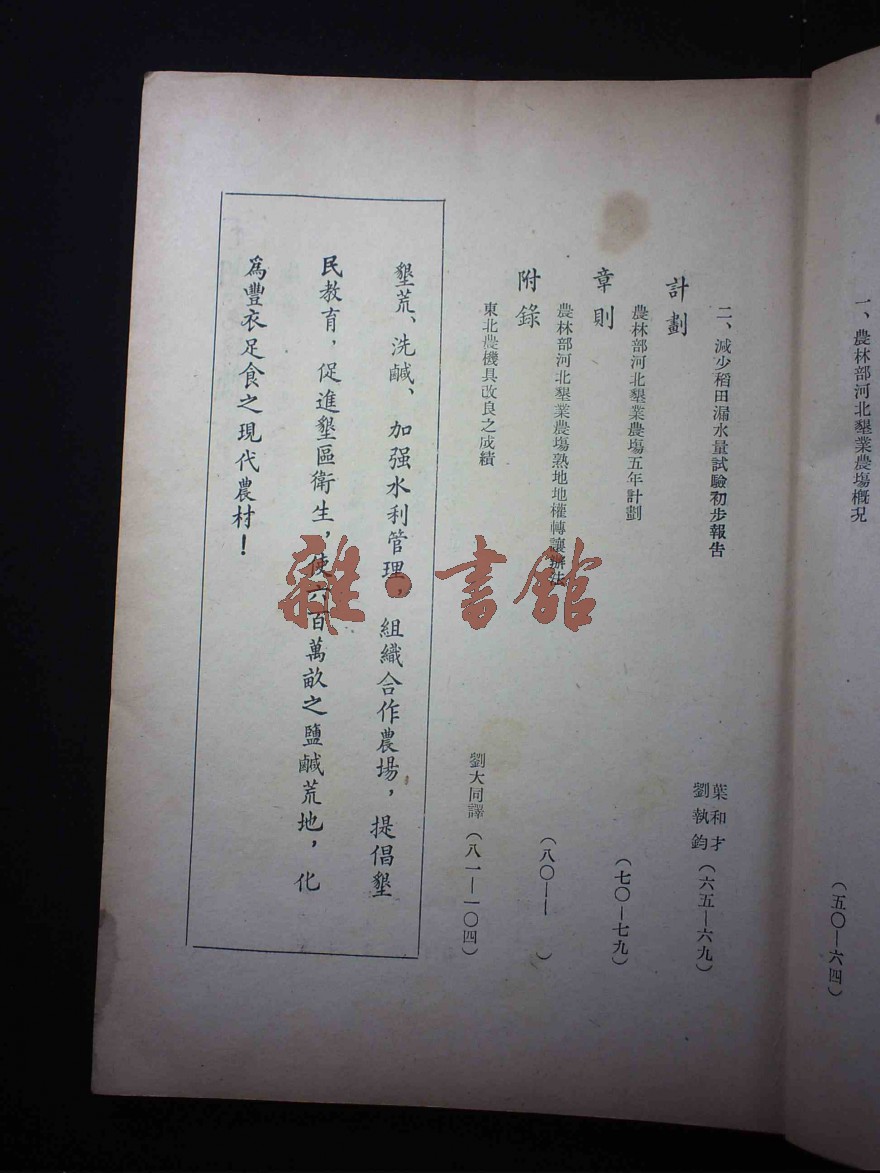 一、農林部河北墾業農場概況 （五〇—六四）
二、減少稻田漏水量試驗初步報告 葉和才 劉執鈞（六五—六九）
計劃
農林部河北墾業農場五年計劃 （七〇—七九）
章則
農林部河北墾業農場熟地地權轉讓辦法 （八〇—— ）
附錄
東北農機具改良之成績 劉大同譯（八一—一〇四）
墾荒、洗鹹、加强水利管理，組織合作農場，提倡墾
民教育，促進墾區衛生，使六百萬畝之鹽鹹荒地，化
爲豐衣足食之現代農村！
雜·書館